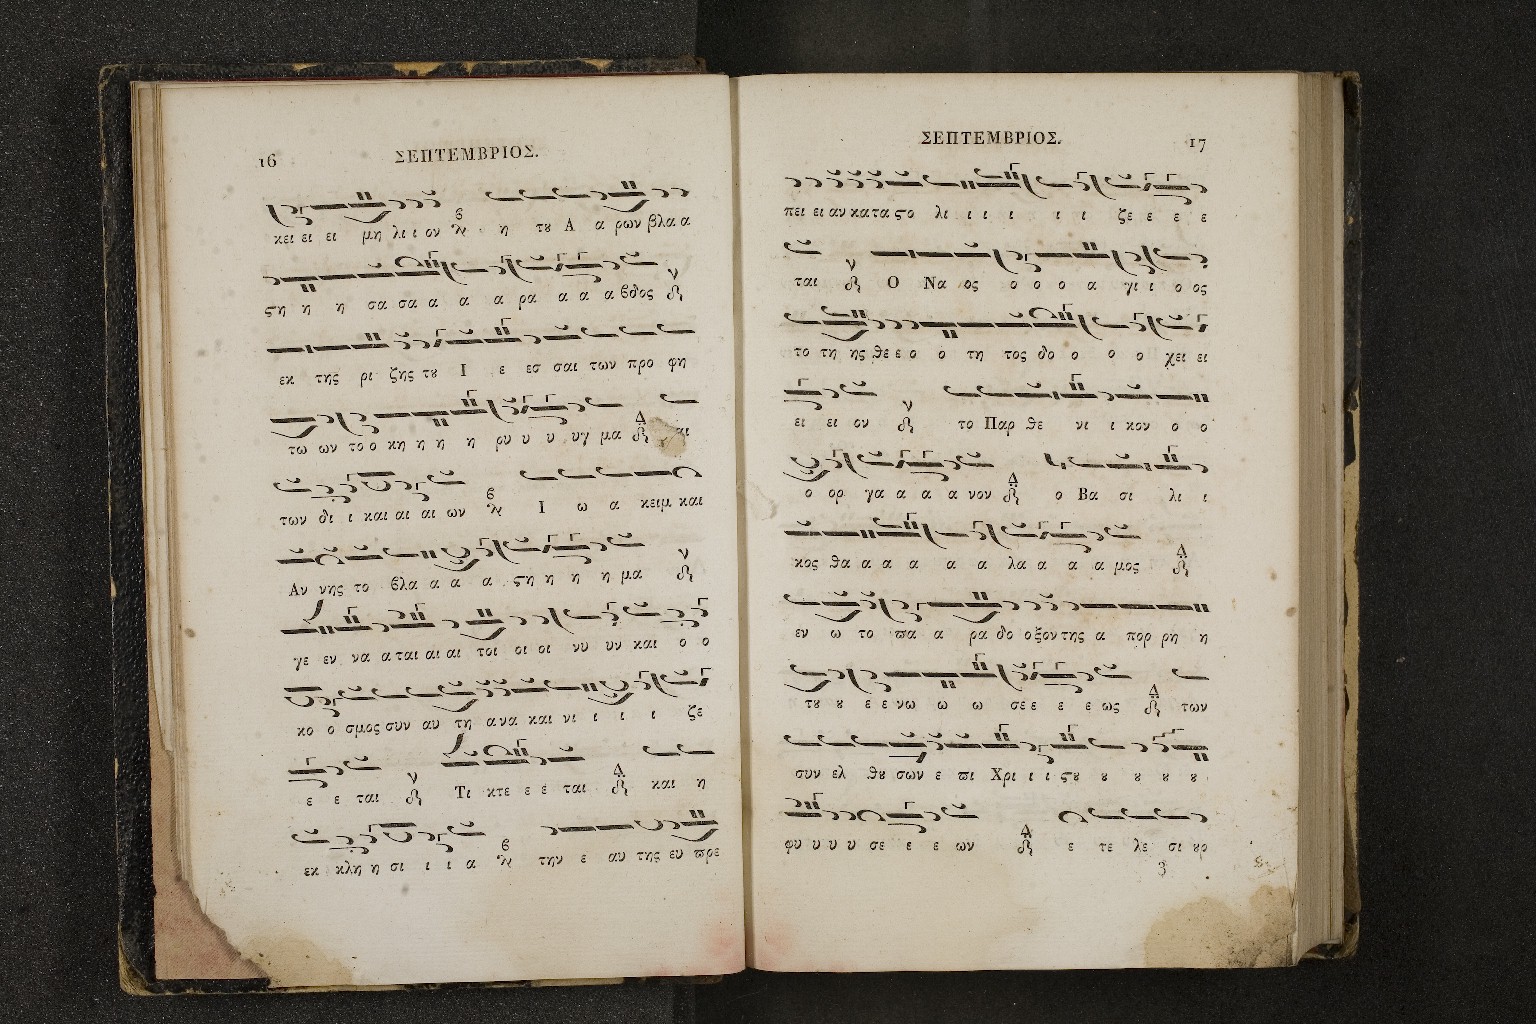 16
ΣΕΠΤΕΜΒΡΙΟΣ.
κει ει ει μη λι ι ον η τȣ Α α ρων βλα α
ϛη η η σα σα α α α ρα α α α βδος
εκ της ρι ζης τȣ Ι ε εσ σαι των προ φη
τω ων το ο κη η η η ρυ υ υ υγ μα αι
των δι ι και αι αι ων Ι ω α κειμ και
Αν νης το βλα α α α ϛη η η η μα
γε εν να α ται αι αι τοι οι οι νυ υν και ο ο
κο ο σμος συν αυ τη ανα και νι ι ι ι ζε
ε ε ται Τι κτε ε ε ται και η
εκ κλη η σι ι ι α την ε αυ της ευ πρε
ΣΕΠΤΕΜΒΡΙΟΣ.
17
πει ει αν κατα ϛο λι ι ι ι ι ι ζε ε ε ε
ται Ο Να ος ο ο ο α γι ι ο ος
το τη ης θε ε ο ο τη τος δο ο ο ο χει ει
ει ει ον το Παρ θε νι ι κον ο ο
ο ορ γα α α α νον ο Βα σι λι ι
κος θα α α α α α λα α α α μος
εν ω το πα α ρα δο οξον της α πορ ρη η
τȣ ȣ ε ε νω ω ω σε ε ε ε ως των
συν ελ θȣ σων ε πι Χρι ι ι ϛȣ ȣ ȣ ȣ ȣ
φυ υ υ υ σε ε ε ων ε τε λε σι ȣρ
3